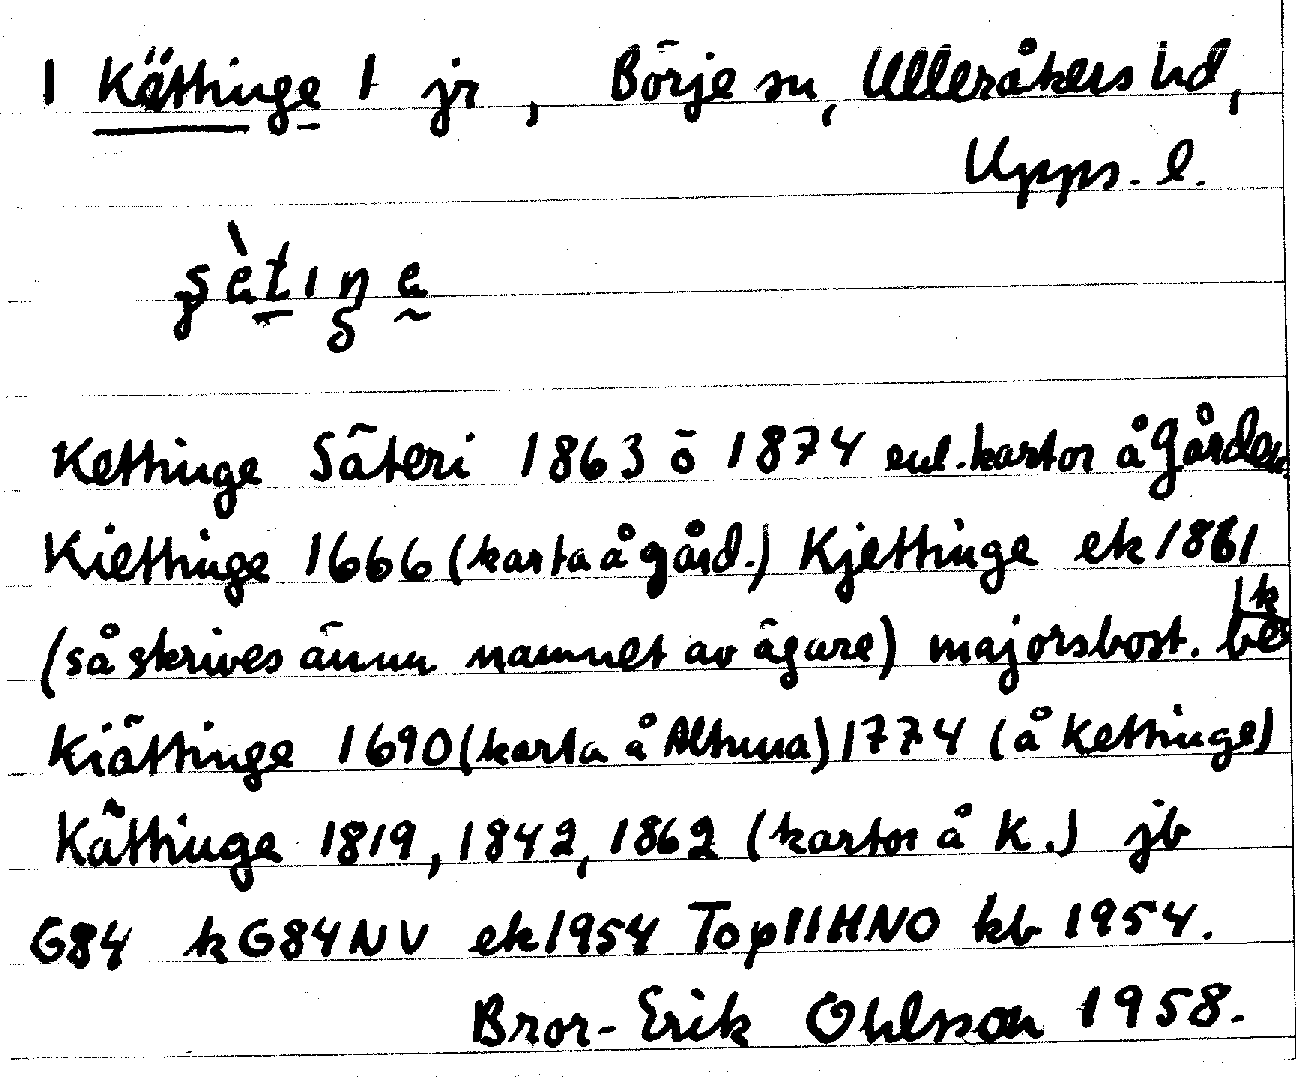 1 Kättinge 1 jr, Börje sn, Ulleråkers hd,
Upps. l.
Kettinge Säteri 1863 ö 1874 enl. kartor å Gården
Kiettinge 1666 (karta å gård.) Kjettinge ek 1861
(så skrives ännu namnet av ägare) majorsbost.
Kiättinge 1690 (karta å Altuna) 1774 (å Kettinge)
Kättinge 1819, 1842, 1862 (kartor å K.) jb
G84 kG84NV ek1954 Top11HNO kb 1954.
Bror-Erik Ohlsson 1958.